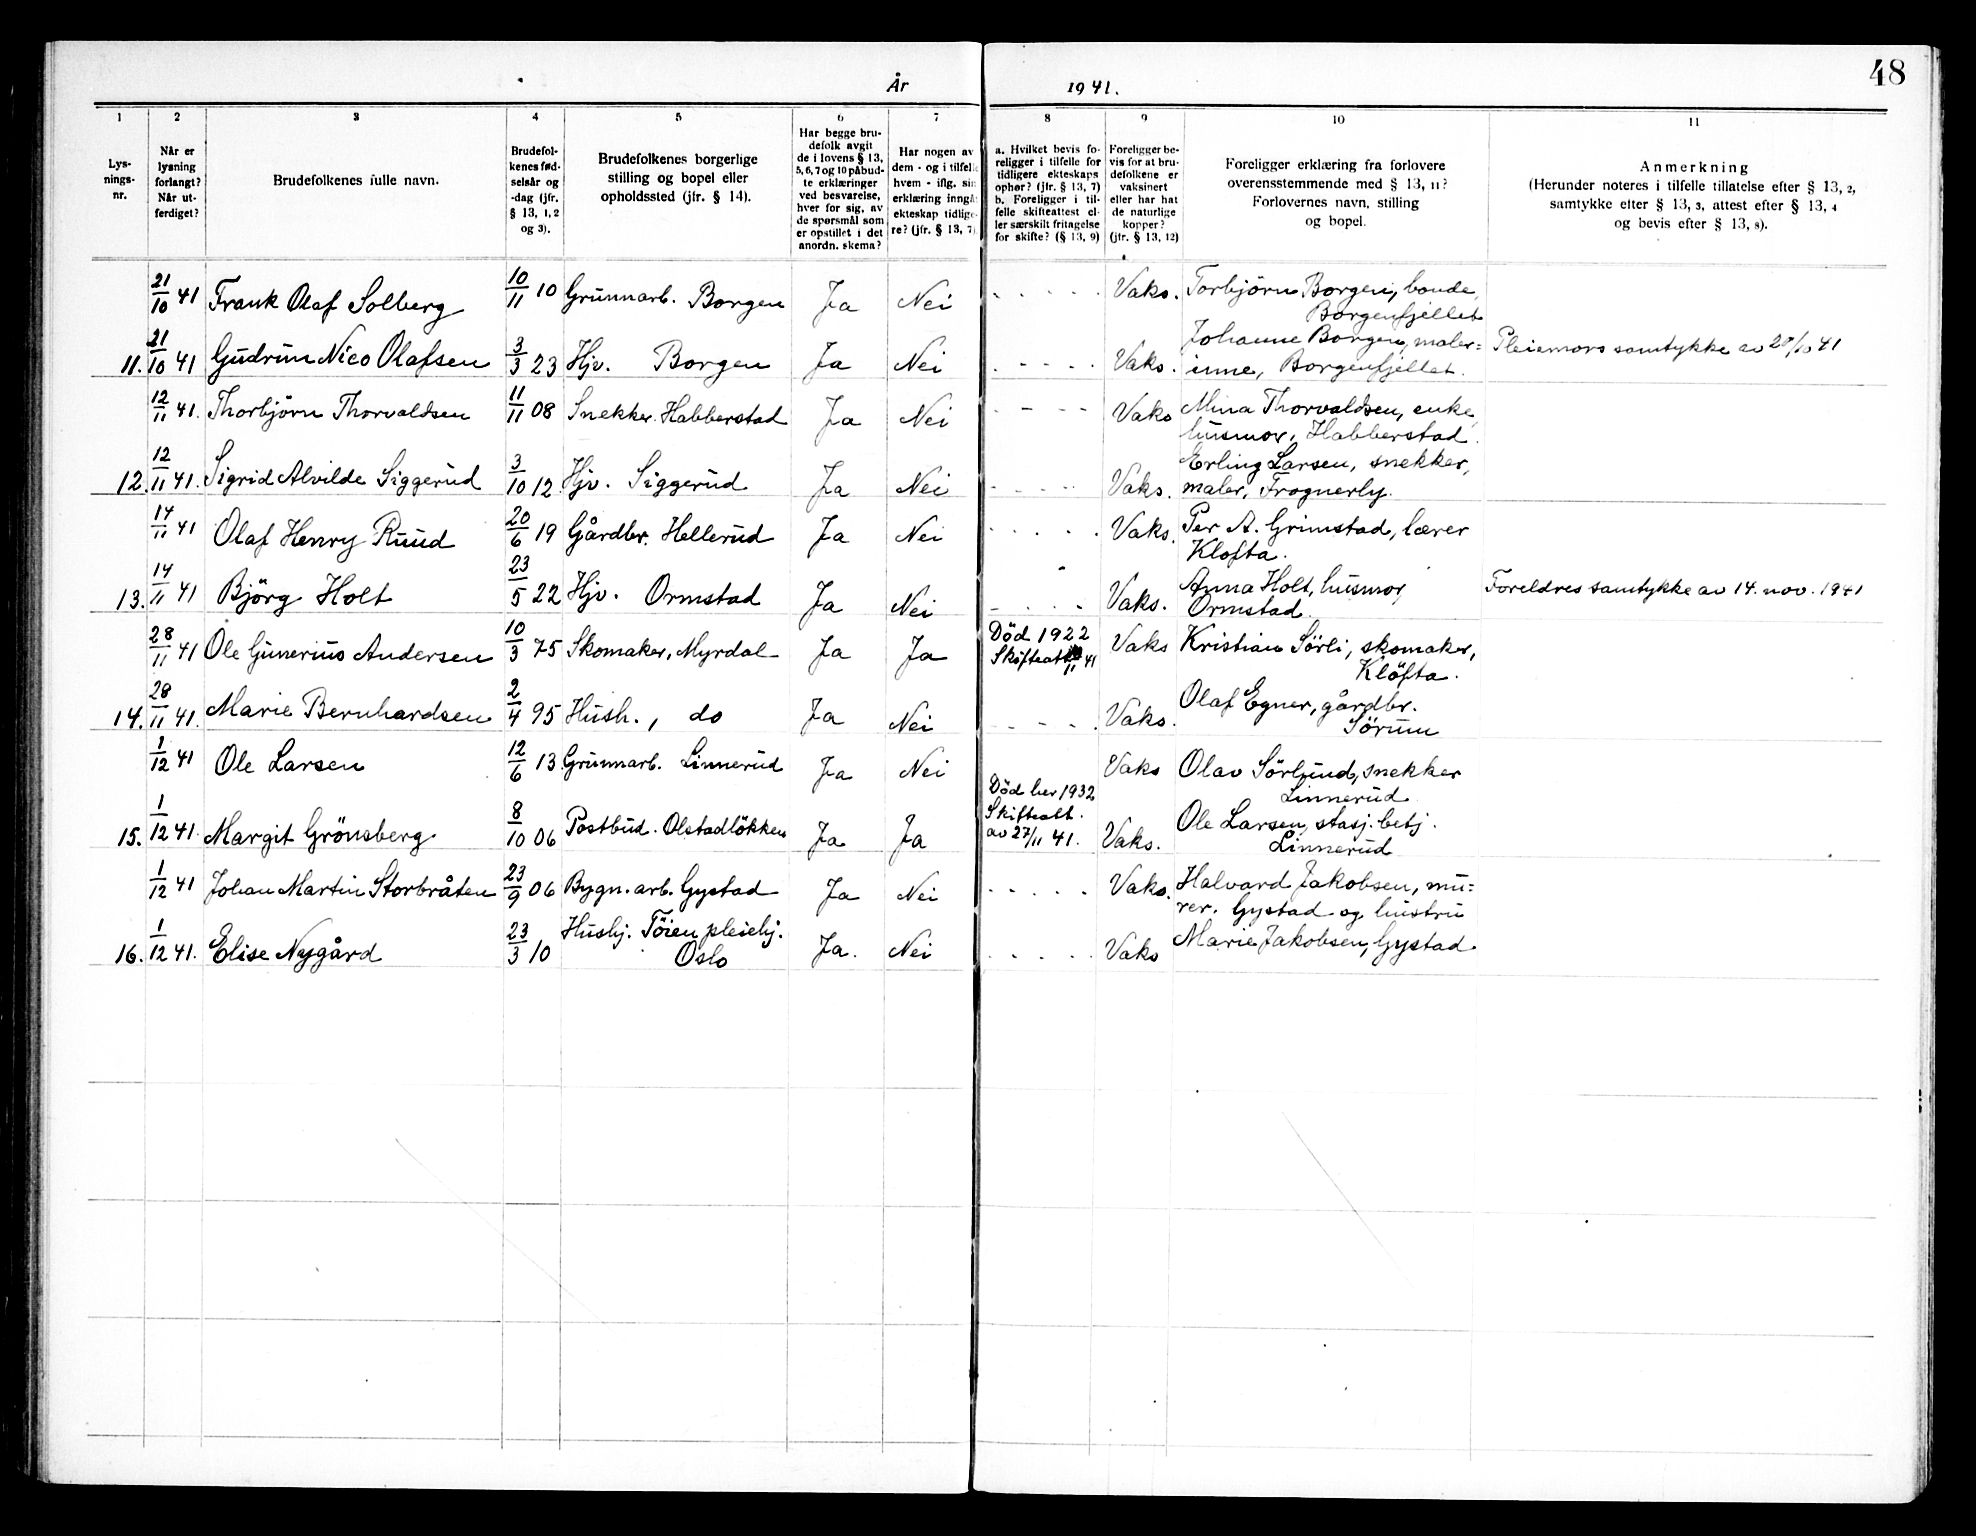 48
År 1941.
1 2 3 4 5 6 7 8 9 10 11
Lys-
nings-
nr.
Når er
lysning
forlangt?
Når ut-
ferdiget?
Brudefolkenes fulle navn.
Brudefol-
kenes fød-
selsår og
-dag (jfr.
§ 13, 1, 2
og 3).
Brudefolkenes borgerlige
stilling og bopel eller
opholdssted (jfr. § 14).
Har begge bru-
defolk avgit
de i lovens § 13,
5, 6, 7 og 10 påbud-
te erklæringer
ved besvarelse,
hver for sig, av
de spørsmål som
er opstillet i det
anordn. skema?
Har nogen av
dem - og i tilfelle
hvem - iflg. sin
erklæring inngå
ekteskap tidlige-
re? (jfr. § 13, 7)
a. Hvilket bevis fo-
religger i tilfelle for
tidligere ekteskaps
ophør? (jfr. § 13, 7)
b. Foreligger i til-
felle skifteattest el-
ler særskilt fritagelse
for skifte? (§ 13, 9)
Foreligger be-
vis for at bru-
defolkene er
vaksinert
eller har hat
de naturlige
kopper?
(jfr. § 13, 12)
Foreligger erklæring fra forlovere
overensstemmende med § 13, 11?
Forlovernes navn, stilling
og bopel.
Anmerkning
(Herunder noteres i tilfelle tillatelse efter § 13, 2,
samtykke efter § 13, 3, attest efter § 13, 4
og bevis efter § 13, 8).
21/10 41 Frank Olaf Solberg 10/11 10 Grunnarb. Borgen Ja Nei - - - - - Vaks. Torbjörn Borgen, bonde,
Borgenfjellet
11. 21/10 41 Gudrun Nico Olafsen 3/3 23 Hjv. Borgen Ja Nei - - - - - Vaks. Johanne Borgen, maler=
inne, Borgenfjellet. Pleiemors samtykke av 20/10 41
12/11 41. Thorbjörn Thorvaldsen 11/11 08 Snekker. Habberstad Ja Nei - - - - Vaks Mina Thorvaldsen, enke,
husmor, Habberstad.
12. 12/11 41. Sigrid Alvilde Siggerud 3/10 12 Hjv. Siggerud Ja Nei - - - - Vaks. Erling Larsen, snekker,
maler, Frognerly.
14/11 41 Olaf Henry Ruud 20/6 19 Gårdbr. Hellerud Ja Nei - - - - - Vaks. Per A. Grimstad, lærer
Klofta.
13. 14/11 41 Björg Holt 23/5 22 Hjv. Ormstad Ja Nei - - - - Vaks. Anna Holt, husmor,
Ormstad. Foreldres samtykke av 14. nov. 1941
28/11 41 Ole Gunerius Andersen 10/3 75 Skomaker, Myrdal Ja Ja Död 1922
Skifteatt /11 41 Vaks Kristian Sörli, skomaker,
Klöfta.
14. 28/11 41. Marie Bernhardsen 2/4 95 Hush., do Ja Nei - - - - Vaks. Olaf Egner, gårdbr.
Sörum
1/12 41 Ole Larsen 12/6 13 Grunnarb. Linnerud Ja Nei Vaks Olav Sörlund, snekker
Linnerud
15. 1/12 41. Margit Grönsberg. 8/10 06 Postbud. Olstadlökken Ja Ja Död her 1932
Skifteatt.
av 27/11 41. Vaks. Ole Larsen, stasj. betj.
Linnerud
1/12 41 Johan Martin Storbråten 23/9 06 Bygn. arb. Gystad Ja Nei - - - - - Vaks. Halvard Jakobsen, mu=
rer. Gystad og hustru
16. 1/12 41. Elise Nygård 23/3 10 Hushj. Töien pleiehj.
Oslo Ja. Nei - - - - - Vaks Marie Jakobsen, Gystad.